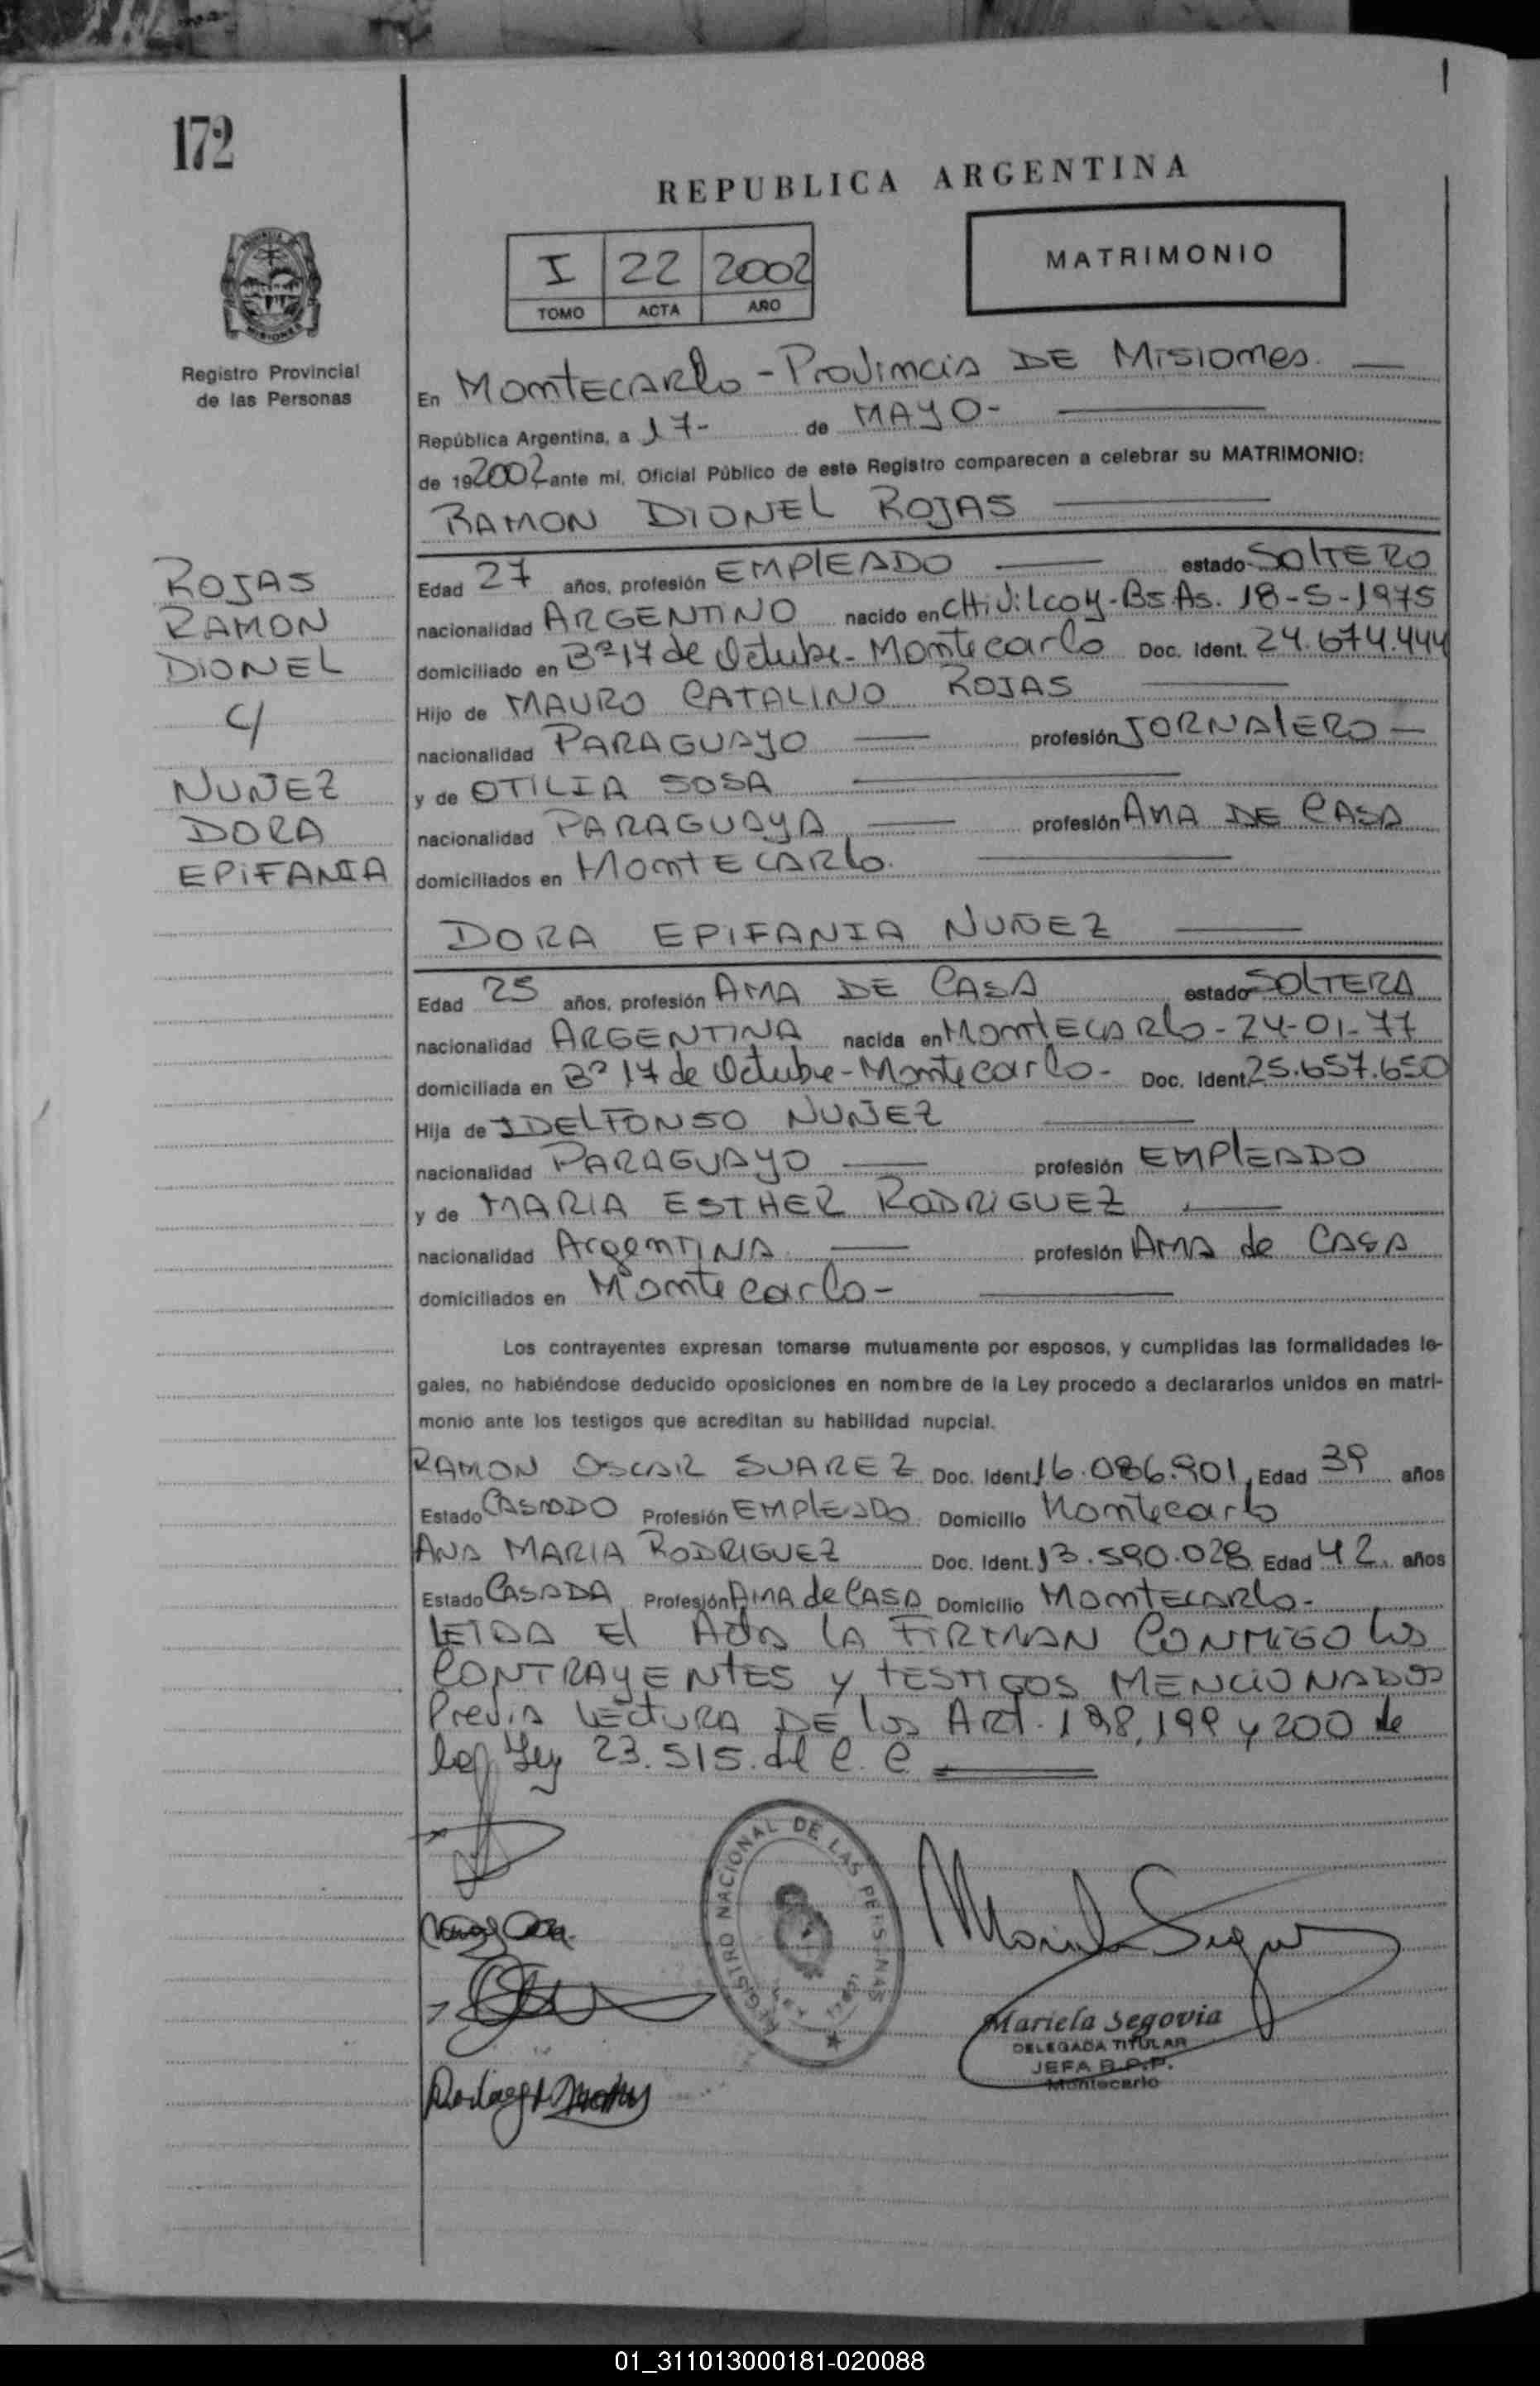 172
REPUBLICA ARGENTINA
MATRIMONIO
I 22 2002
TOMO ACTA AÑO
Registro Provincial
de las Personas
En Montecarlo - Provincia DE Misiones.
República Argentina, a 17- de MAYO-
de 192002 ante mí, Oficial Público de este Registro comparecen a celebrar su MATRIMONIO:
RAMON DIONEL ROJAS
ROJAS
RAMON
DIONEL
C/
NUÑEZ
DORA
EPIFANIA
Edad 27 años, profesión EMPLEADO estado SOLTERO
nacionalidad ARGENTINO nacido en CHiViLcoy-Bs.As. 18-5-1975
domiciliado en Bº 17 de Octubre - Montecarlo Doc. Ident. 24.674.444
Hijo de MAURO CATALINO ROJAS
nacionalidad PARAGUAYO profesión JORNALERO -
y de OTILIA SOSA
nacionalidad PARAGUAYA profesión AMA DE CASA
domiciliados en MONTECARLO.
DORA EPIFANIA NUÑEZ
Edad 25 años, profesión AMA DE CASA estado SOLTERA
nacionalidad ARGENTINA nacida en MONTECARLO - 24-01-77
domiciliada en Bº 17 de Octubre - Montecarlo - Doc. Ident. 25.657.650
Hija de IDELFONSO NUÑEZ
nacionalidad PARAGUAYO profesión EMPLEADO
y de MARIA ESTHER RODRIGUEZ
nacionalidad ArgenTINA profesión AMA de CASA
domiciliados en Montecarlo -
Los contrayentes expresan tomarse mutuamente por esposos, y cumplidas las formalidades le-
gales, no habiéndose deducido oposiciones en nombre de la Ley procedo a declararlos unidos en matri-
monio ante los testigos que acreditan su habilidad nupcial.
RAMON OSCAR SUAREZ Doc. Ident. 16.086.901, Edad 39 años
Estado CASADO Profesión EMPLEADO Domicilio Montecarlo
ANA MARIA RODRIGUEZ Doc. Ident. 13.590.028 Edad 42. años
Estado CASADA Profesión AMA de CASA Domicilio Montecarlo -
LEIDA El Acta LA FIRMAN CONMIGO los
CONTRAYENTES y TESTIGOS MENCIONADOS
Previa LECTURA DE los Art. 198, 199 y 200 de
la Ley 23.515. del C. C
REGISTRO NACIONAL DE LAS PERSONAS
LEY
Mariela Segovia
DELEGADA TITULAR
JEFA R.P.P.
Montecarlo
01_311013000181-020088